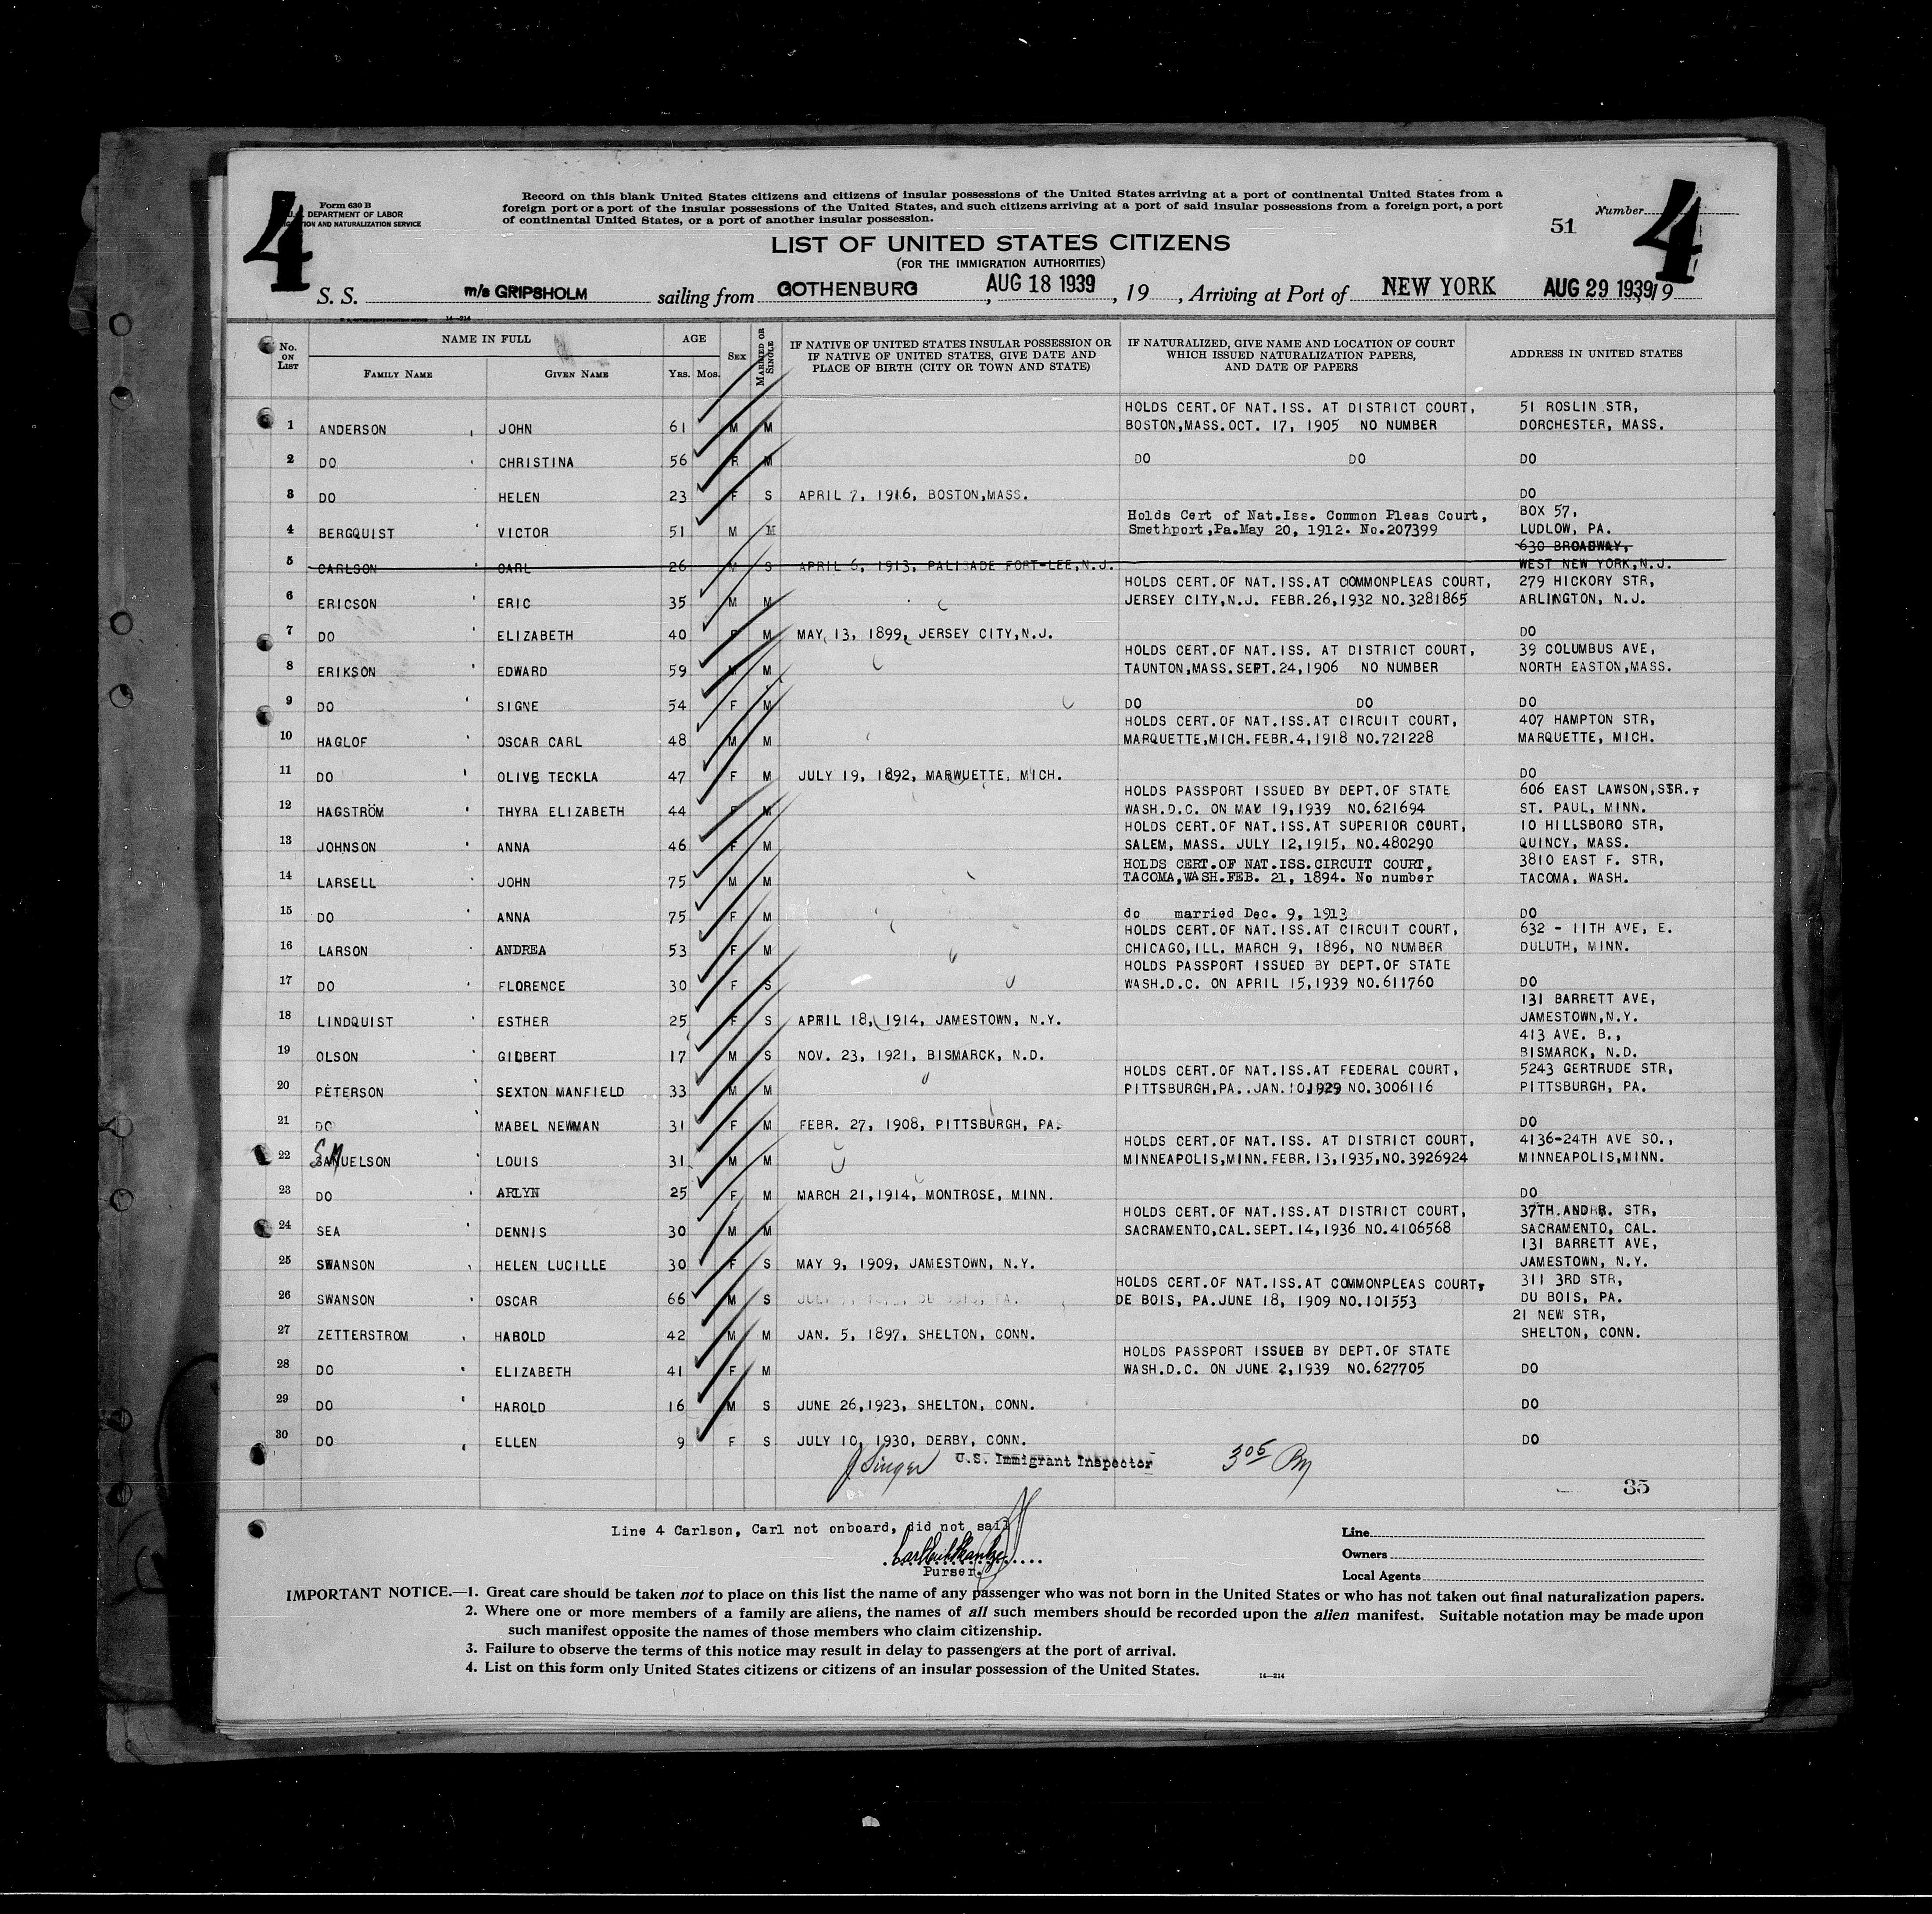 4
Form 630 B
DEPARTMENT OF LABOR
AND NATURALIZATION SERVICE
Record on this blank United States citizens and citizens of insular possessions of the United States arriving at a port of continental United States from a
foreign port or a port of the insular possessions of the United States, and such citizens arriving at a port of said insular possessions from a foreign port, a port
of continental United States, or a port of another insular possession.
51
Number
4
LIST OF UNITED STATES CITIZENS
(FOR THE IMMIGRATION AUTHORITIES)
S. S. m/s GRIPSHOLM sailing from GOTHENBURG, AUG 18 1939, 19 , Arriving at Port of NEW YORK AUG 29 1939, 19
14—214
No. ON LIST
NAME IN FULL
FAMILY NAME
GIVEN NAME
AGE
YRS. MOS.
SEX
MARRIED OR SINGLE
IF NATIVE OF UNITED STATES INSULAR POSSESSION OR
IF NATIVE OF UNITED STATES, GIVE DATE AND
PLACE OF BIRTH (CITY OR TOWN AND STATE)
IF NATURALIZED, GIVE NAME AND LOCATION OF COURT
WHICH ISSUED NATURALIZATION PAPERS,
AND DATE OF PAPERS
ADDRESS IN UNITED STATES
HOLDS CERT.OF NAT.ISS. AT DISTRICT COURT, 51 ROSLIN STR,
1 ANDERSON , JOHN 61 M M BOSTON,MASS.OCT. 17, 1905 NO NUMBER DORCHESTER, MASS.
2 DO CHRISTINA 56 F M DO DO DO
3 DO HELEN 23 F S APRIL 7, 1916, BOSTON,MASS. DO
Holds Cert of Nat.Iss. Common Pleas Court, BOX 57,
4 BERGQUIST VICTOR 51 M M Smethport,Pa.May 20, 1912. No.207399 LUDLOW, PA.
630 BROADWAY,
5 CARLSON CARL 26 M S APRIL 6, 1913, PALISADE FORT-LEE,N.J. WEST NEW YORK,N.J.
HOLDS CERT.OF NAT.ISS.AT COMMONPLEAS COURT, 279 HICKORY STR,
6 ERICSON ERIC 35 M M JERSEY CITY,N.J. FEBR.26,1932 NO.3281865 ARLINGTON, N.J.
7 DO ELIZABETH 40 F M MAY 13, 1899, JERSEY CITY,N.J. DO
HOLDS CERT.OF NAT.ISS. AT DISTRICT COURT, 39 COLUMBUS AVE,
8 ERIKSON EDWARD 59 M M TAUNTON,MASS.SEPT.24,1906 NO NUMBER NORTH EASTON,MASS.
9 DO SIGNE 54 F M DO DO DO
HOLDS CERT.OF NAT.ISS.AT CIRCUIT COURT, 407 HAMPTON STR,
10 HAGLOF OSCAR CARL 48 M M MARQUETTE,MICH.FEBR.4,1918 NO.721228 MARQUETTE, MICH.
11 DO OLIVE TECKLA 47 F M JULY 19, 1892, MARWUETTE, MICH. DO
HOLDS PASSPORT ISSUED BY DEPT.OF STATE 606 EAST LAWSON,STR.,
12 HAGSTRÖM THYRA ELIZABETH 44 F M WASH.D.C. ON MAY 19,1939 NO.621694 ST. PAUL, MINN.
HOLDS CERT.OF NAT.ISS.AT SUPERIOR COURT, 10 HILLSBORO STR,
13 JOHNSON ANNA 46 F M SALEM, MASS. JULY 12,1915, NO.480290 QUINCY, MASS.
HOLDS CERT.OF NAT.ISS.CIRCUIT COURT, 3810 EAST F. STR,
14 LARSELL JOHN 75 M M TACOMA,WASH.FEB. 21, 1894. No number TACOMA, WASH.
15 DO ANNA 75 F M do married Dec. 9, 1913 DO
HOLDS CERT.OF NAT.ISS.AT CIRCUIT COURT, 632 - 11TH AVE, E.
16 LARSON ANDREA 53 F M CHICAGO,ILL. MARCH 9, 1896, NO NUMBER DULUTH, MINN.
HOLDS PASSPORT ISSUED BY DEPT.OF STATE
17 DO FLORENCE 30 F S WASH.D.C. ON APRIL 15,1939 NO.611760 DO
131 BARRETT AVE,
18 LINDQUIST ESTHER 25 F S APRIL 18, 1914, JAMESTOWN, N.Y. JAMESTOWN,N.Y.
413 AVE. B.,
19 OLSON GILBERT 17 M S NOV. 23, 1921, BISMARCK, N.D. BISMARCK, N.D.
HOLDS CERT.OF NAT.ISS.AT FEDERAL COURT, 5243 GERTRUDE STR,
20 PETERSON SEXTON MANFIELD 33 M M PITTSBURGH,PA..JAN.10,1929 NO.3006116 PITTSBURGH, PA.
21 DO MABEL NEWMAN 31 F M FEBR. 27, 1908, PITTSBURGH, PA. DO
HOLDS CERT.OF NAT.ISS. AT DISTRICT COURT, 4136-24TH AVE SO.,
22 SAMUELSON LOUIS 31 M M MINNEAPOLIS,MINN.FEBR.13,1935,NO.3926924 MINNEAPOLIS,MINN.
23 DO ARLYN 25 F M MARCH 21,1914, MONTROSE, MINN. DO
HOLDS CERT.OF NAT.ISS.AT DISTRICT COURT, 37TH.AND R. STR,
24 SEA DENNIS 30 M M SACRAMENTO,CAL.SEPT.14,1936 NO.4106568 SACRAMENTO, CAL.
131 BARRETT AVE,
25 SWANSON , HELEN LUCILLE 30 F S MAY 9, 1909, JAMESTOWN, N.Y. JAMESTOWN, N.Y.
HOLDS CERT.OF NAT.ISS.AT COMMONPLEAS COURT, 311 3RD STR,
26 SWANSON OSCAR 66 M S DE BOIS, PA.JUNE 18, 1909 NO.101553 DU BOIS, PA.
21 NEW STR,
27 ZETTERSTROM , HAROLD 42 M M JAN. 5, 1897, SHELTON, CONN. SHELTON, CONN.
HOLDS PASSPORT ISSUED BY DEPT.OF STATE
28 DO ELIZABETH 41 F M WASH.D.C. ON JUNE 2,1939 NO.627705 DO
29 DO HAROLD 16 M S JUNE 26,1923, SHELTON, CONN. DO
30 DO , ELLEN 9 F S JULY 10, 1930, DERBY, CONN. DO
J Singer U.S. Immigrant Inspector 3 05 Pm
35
Line 4 Carlson, Carl not onboard, did not sail
Purser.
Line
Owners
Local Agents
IMPORTANT NOTICE.—1. Great care should be taken not to place on this list the name of any passenger who was not born in the United States or who has not taken out final naturalization papers.
2. Where one or more members of a family are aliens, the names of all such members should be recorded upon the alien manifest. Suitable notation may be made upon
such manifest opposite the names of those members who claim citizenship.
3. Failure to observe the terms of this notice may result in delay to passengers at the port of arrival.
4. List on this form only United States citizens or citizens of an insular possession of the United States.
14—214